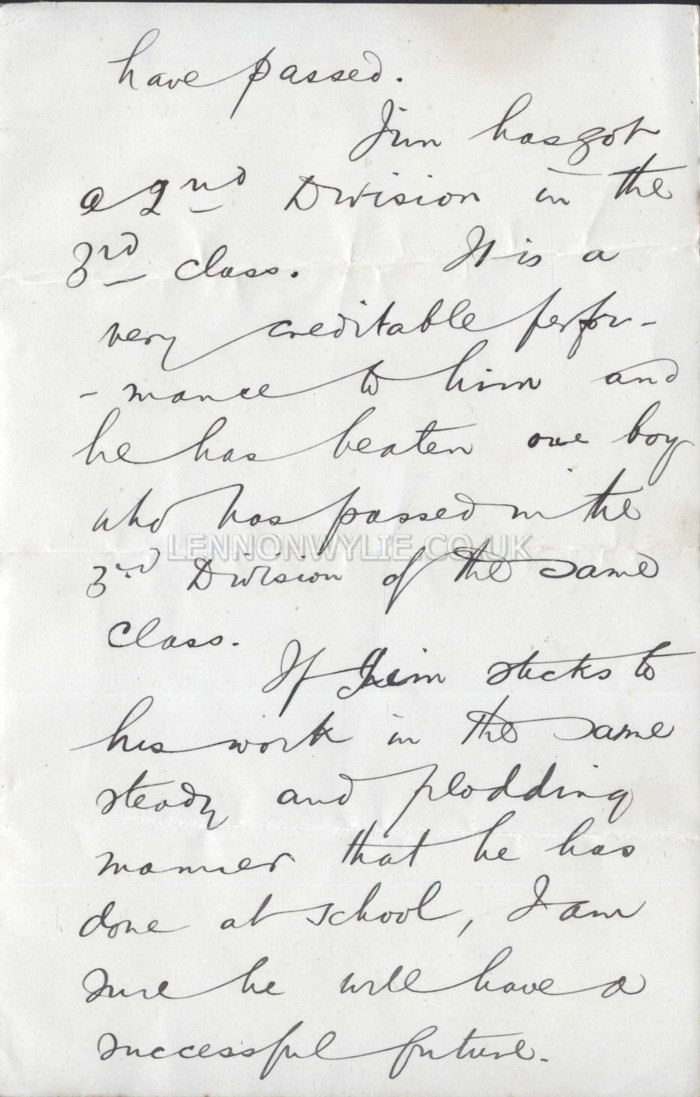 have passed.
Jim has got
a 2nd Division in the
3rd class. It is a
very creditable perfor-
-mance to him and
he has beaten one boy
who has passed in the
LENNONWYLIE.CO.UK
3rd Division of the same
class.
If Jim sticks to
his work in the same
steady and plodding
manner that he has
done at school, I am
sure he will have a
successful future.